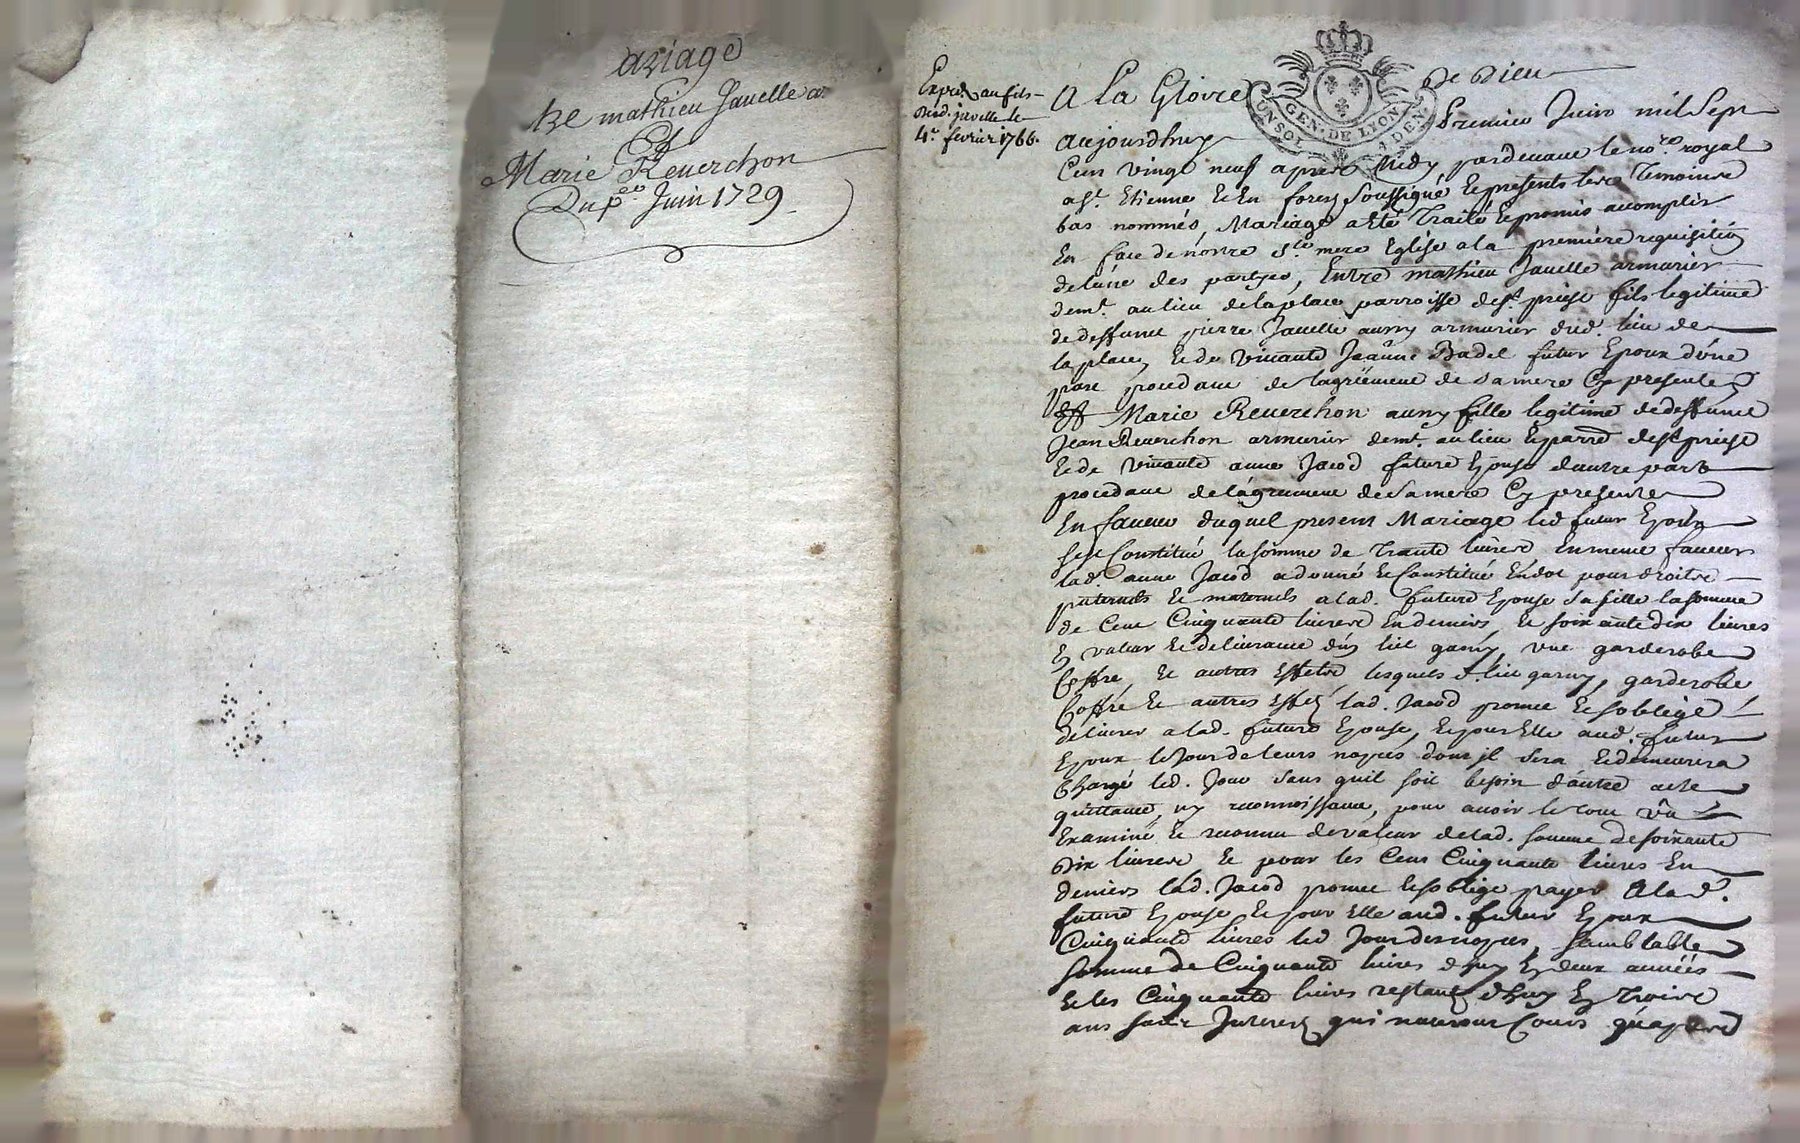 ariage
De mathieu Javelle a.
Et
Marie Reverchon
Du p.er Juin 1729
Exped. au fils
dud. javelle le
4.e fevrier 1766.
A La Gloire De Dieu
GEN. DE LYON
UN SOL
Aujourdhuy Premier Juin mil Sept
Cens vingt neuf apres Midy pardevant le no.re royal
a S.t Etienne Et En forez Soussigné Et presents les Temoins
bas nommés, Mariage a Eté Traité Et promis accomplir
En face de nôtre S.te mere Eglise a la première requisition
de l'une des partyes, Entre mathieu Javelle armurier
dem.t au lieu de la place parroisse de S.t priest fils legitime
de deffunct pierre Javelle auny armurier dud. lieu de
la place, Et de vivante Jeanne Badel futur Epoux d'une
part procedant de l'agréement de sa mere Cy presente
Et Marie Reverchon auny fille legitime de deffunct
Jean Reverchon armurier dem.t au lieu Et parr.e de S.t priest
Et de vivante anne Jacod future Epouse d'autre part
procedant de l'agrement de Sa mere Cy presente
En faveur duquel present Mariage led futur Epoux
sest Constitué la somme de Trante livres En meme faveur
lad. anne Jacod a donné Et Constitué En dot pour droits
paternels Et maternels a lad. future Epouse Sa fille la somme
de Cent Cinquante livres En deniers, Et soixante dix livres
En valeur Et delivrance d'un lict garny, une garderobe
Coffre, Et autres Effets lesquels d. lict garny, garderobe
Coffre Et autres Effets lad. Jacod promet Et s'oblige
delivrer a lad. future Epouse, Et pour Elle aud. futur
Epoux le Jour de leurs nopces dont jl sera Et demeurera
Chargé led. Jour sans quil soit besoin d'autre acte
quittance, ny reconnoissance, pour avoir le tout vû
Examiné Et reconnu de valeur de lad. somme de soixante
Dix livres Et pour les Cent Cinquante livres En
deniers lad. Jacod promet Et s'oblige payer A lad.
future Epouse Et pour Elle aud. futur Epoux
Cinquante livres led Jour des nopces, Semblable
somme de Cinquante livres d'huy En deux années
Et les Cinquante livres restants d'huy En Trois
ans sans Jnterests qui nauront Cours qu'apres